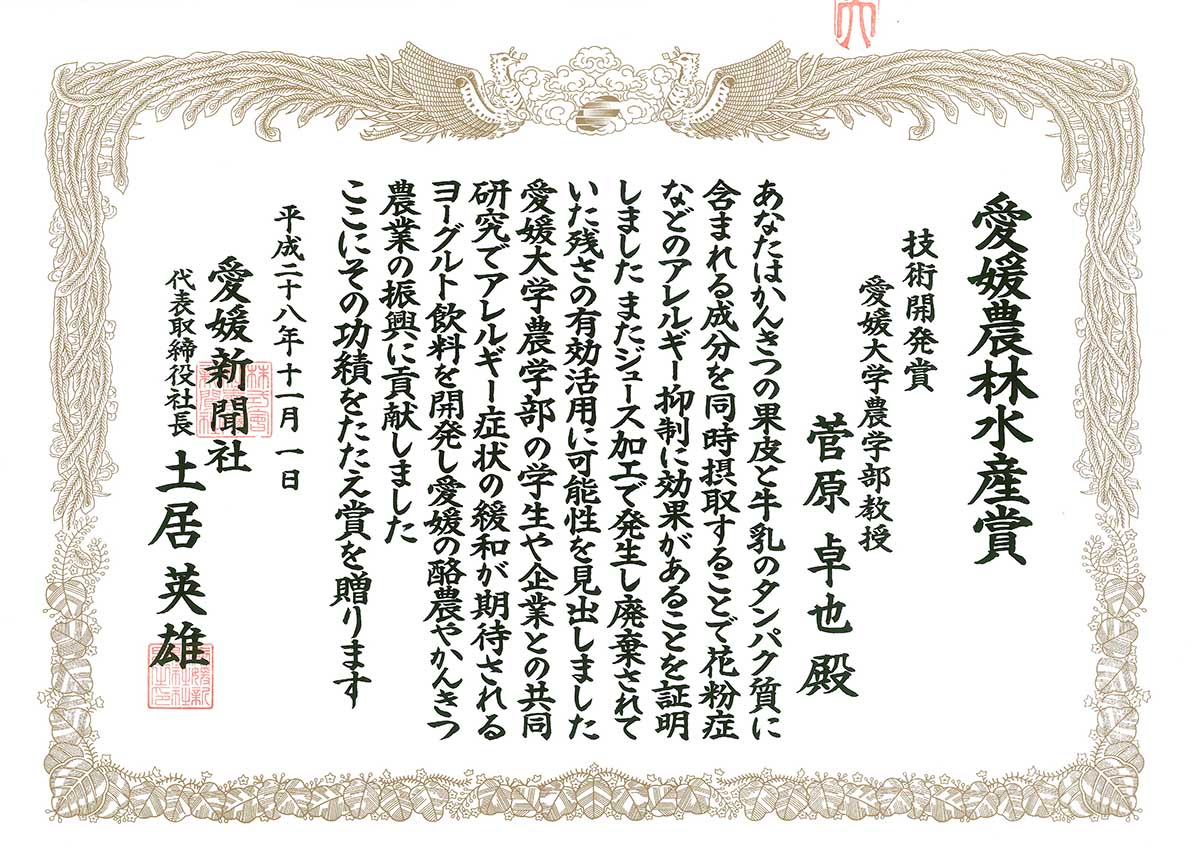 愛媛農林水産賞
技術開発賞
愛媛大学農学部教授
菅原卓也殿
あなたはかんきつの果皮と牛乳のタンパク質に
含まれる成分を同時摂取することで花粉症
などのアレルギー抑制に効果があることを証明
しました またジュース加工で発生し廃棄されて
いた残さの有効活用に可能性を見出しました
愛媛大学農学部の学生や企業との共同
研究でアレルギー症状の緩和が期待される
ヨーグルト飲料を開発し愛媛の酪農やかんきつ
農業の振興に貢献しました
ここにその功績をたたえ賞を贈ります
平成二十八年十一月一日
愛媛新聞社
代表取締役社長 土居英雄